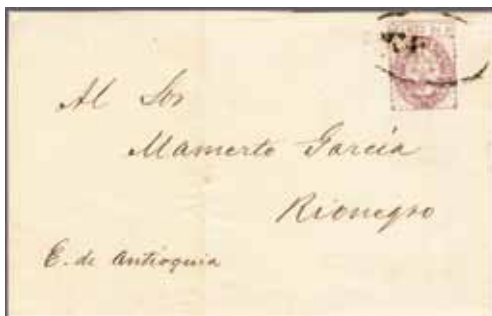 Al Sor
Mamerto García
Rionegro
E. de Antioquia